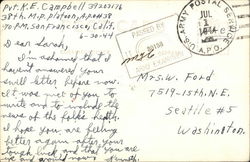 Pvt. K.E. Campbell 39203176
38th M.P. Platoon, APO #38
% P.M. San Francisco, Calif.
6-30-44
Dear Sarah,
I'm ashamed that I
haven't answered your
swell letter before now.
It was nice of you to
write and to include the
news of the folks health.
I hope you are feeling
better again after your
tough luck and that you are
U.S. ARMY POSTAL SERVICE
JUL
1
A.P.O.
PASSED BY
Mrs. W. Ford
7519-15th N.E.
Seattle #5
Washington.